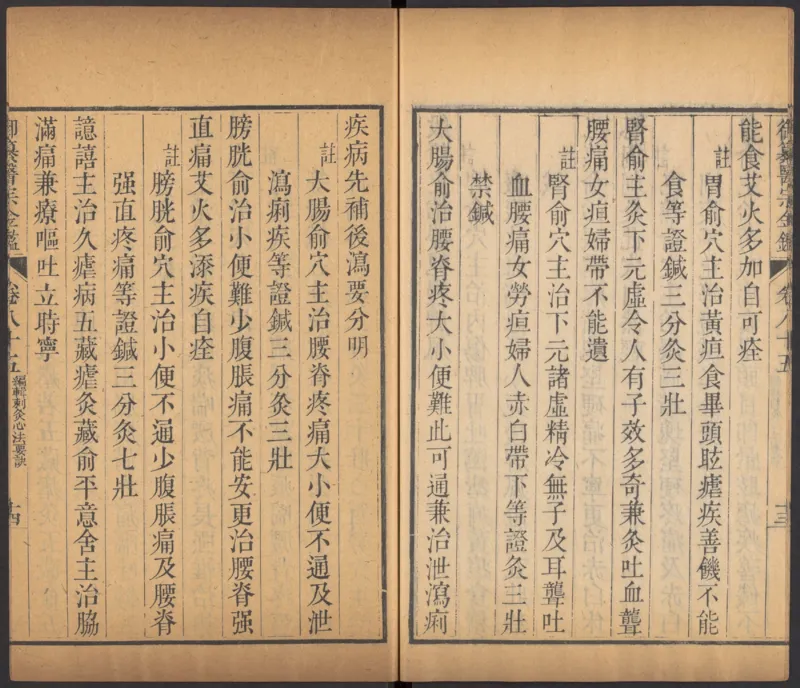 御纂醫宗金鑑 卷八十五 十三
能食艾火多加自可痊
註 胃俞穴主治黃疸食畢頭眩瘧疾善饑不能
食等證鍼三分灸三壯
腎俞主灸下元虛令人有子效多奇兼灸吐血聾
腰痛女疸婦帶不能遺
註 腎俞穴主治下元諸虛精冷無子及耳聾吐
血腰痛女勞疸婦人赤白帶下等證灸三壯
禁鍼
大腸俞治腰脊疼大小便難此可通兼治泄瀉痢
疾病先補後瀉要分明
註 大腸俞穴主治腰脊疼痛大小便不通及泄
瀉痢疾等證鍼三分灸三壯
膀胱俞治小便難少腹脹痛不能安更治腰脊强
直痛艾火多添疾自痊
註 膀胱俞穴主治小便不通少腹脹痛及腰脊
强直疼痛等證鍼三分灸七壯
譩譆主治久瘧病五藏瘧灸藏俞平意舍主治脇
滿痛兼療嘔吐立時寧
御纂醫宗金鑑 卷八十五 編輯刺灸心法要訣 十四